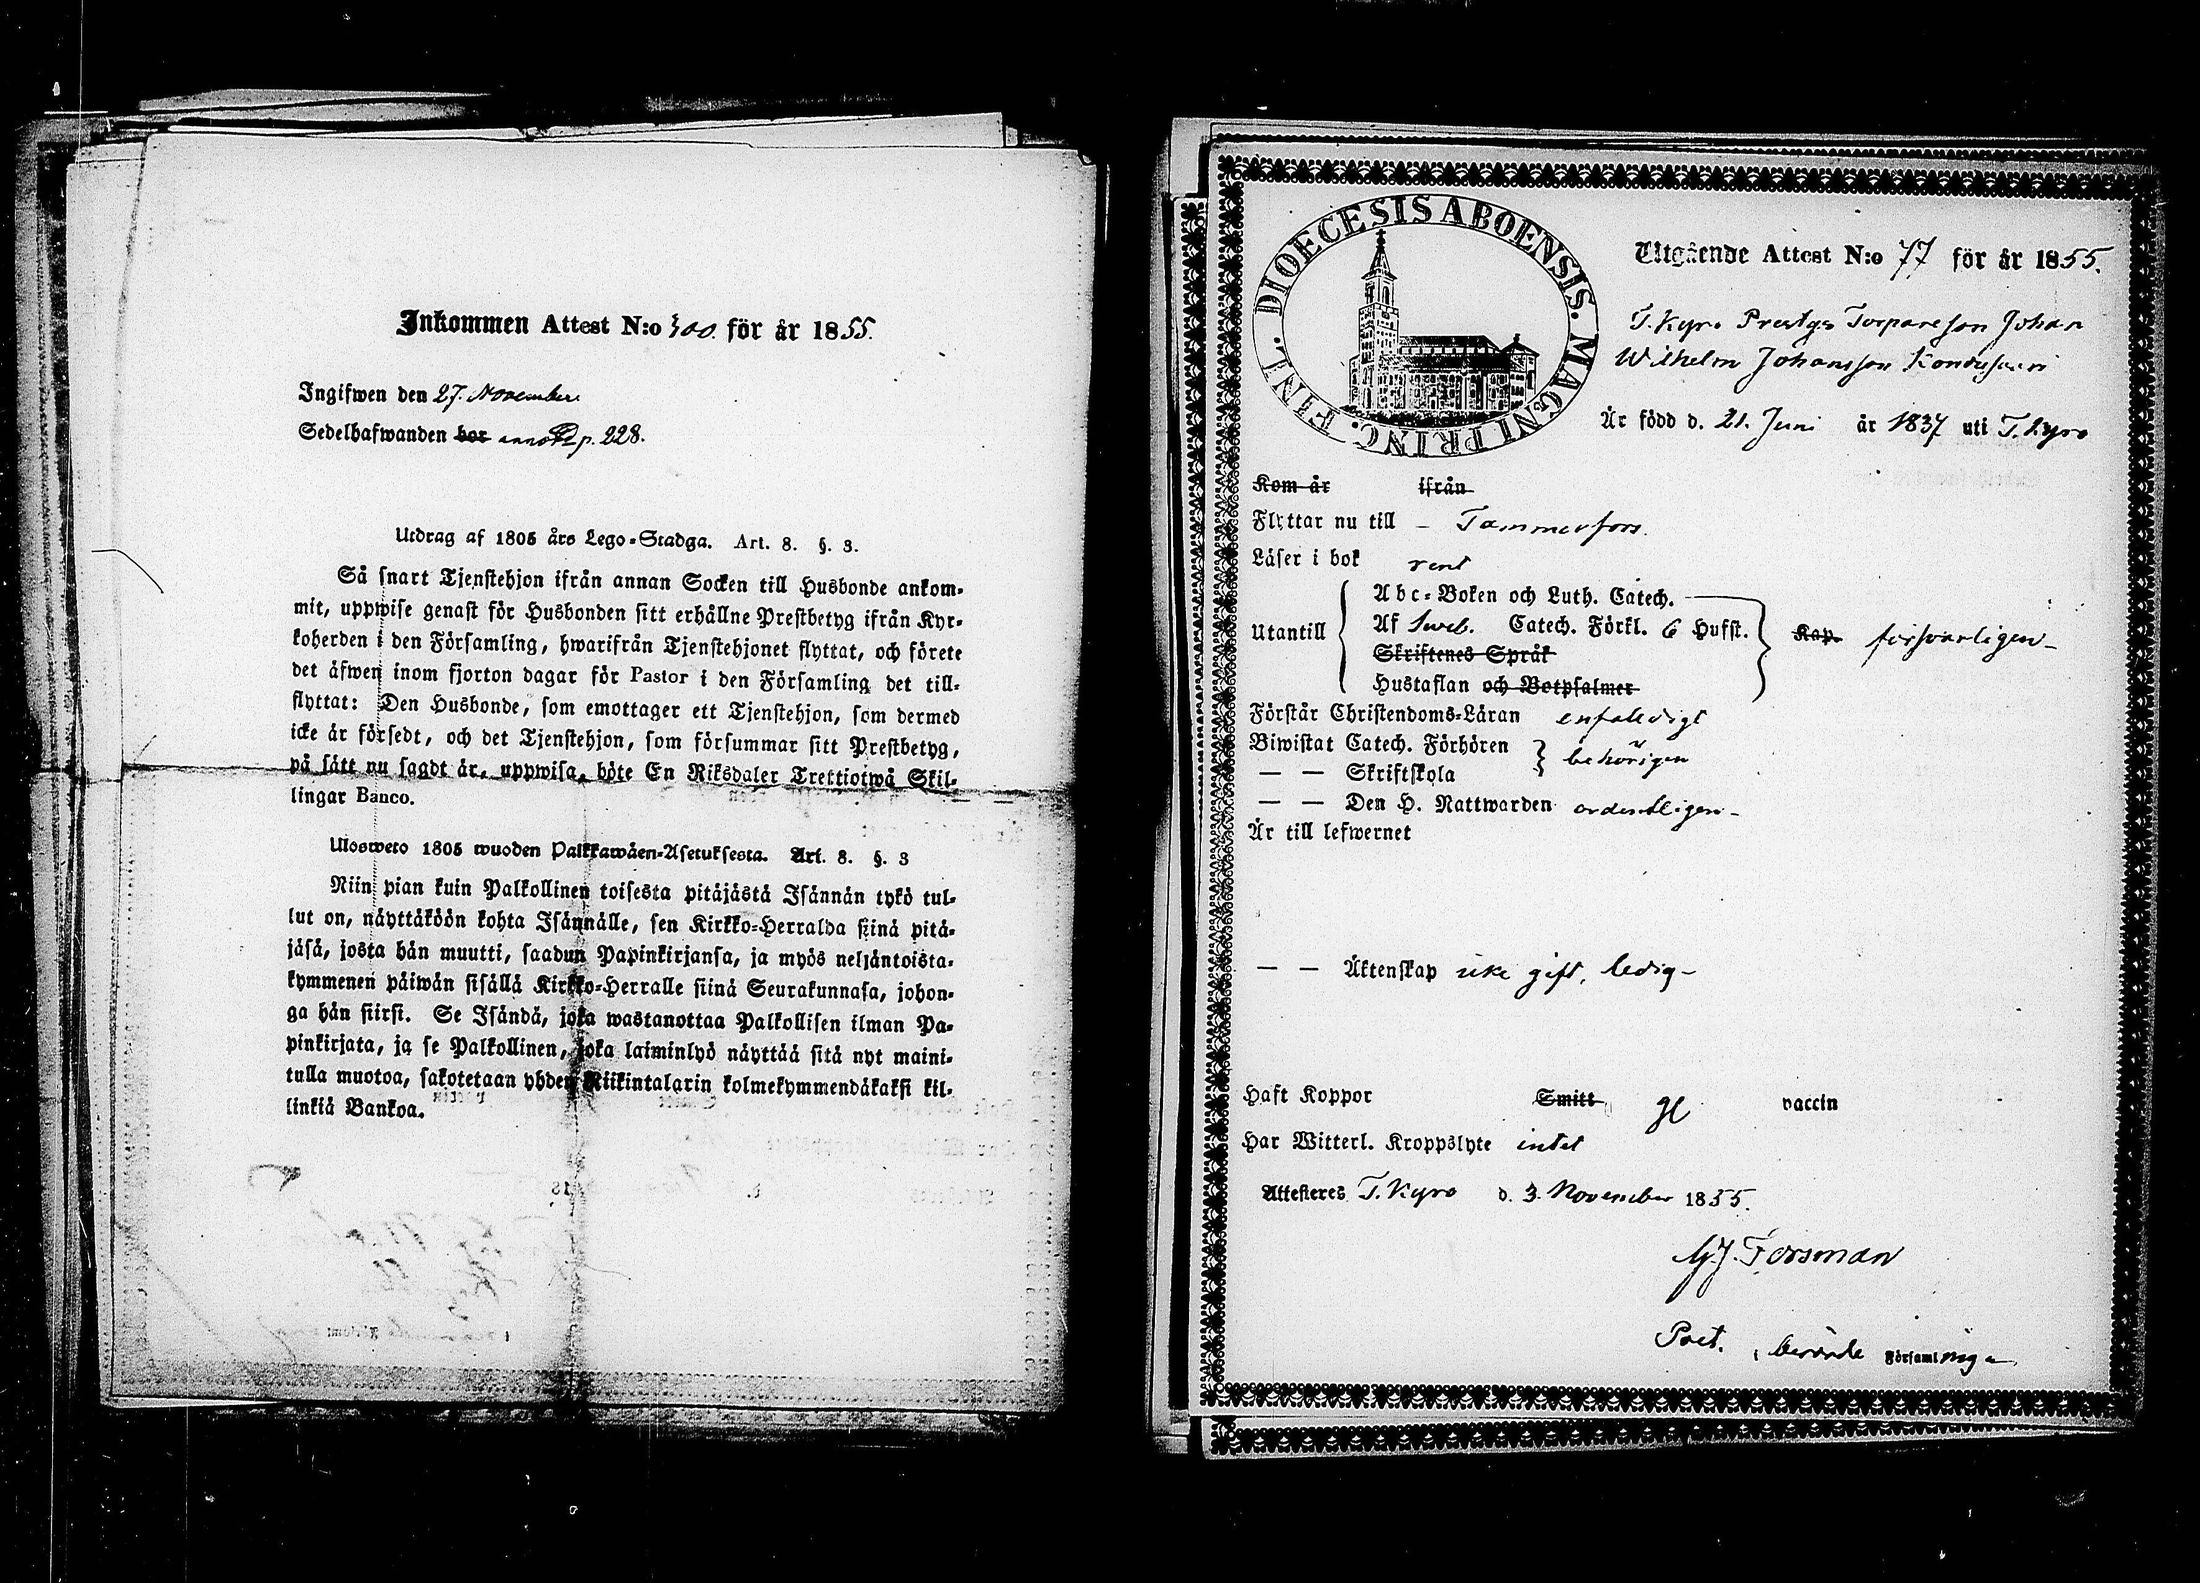 Inkommen Attest N:o 300. för år 1855.
Ingifwen den 27. November
Sedelhafwanden bor annot p. 228.
Utdrag af 1805 års Lego-Stadga. Art. 8. §. 3.
Så snart Tjenstehjon ifrån annan Socken till Husbonde ankom-
mit, uppwise genast för Husbonden sitt erhållne Prestbetyg ifrån Kyr-
koherden i den Församling, hwarifrån Tjenstehjonet flyttat, och förete
det äfwen inom fjorton dagar för Pastor i den Församling det till-
flyttat: Den Husbonde, som emottager ett Tjenstehjon, som dermed
icke är försedt, och det Tjenstehjon, som försummar sitt Prestbetyg,
på sätt nu sagdt är, uppwisa, böte En Riksdaler Trettiotwå Skil-
lingar Banco.
Ulosweto 1805 wuoden Palkkawäen-Asetuksesta. Art. 8. §. 3
Niin pian kuin Palkollinen toisesta pitäjästä Isännän tykö tul-
lut on, näyttäköön kohta Isännälle, sen Kirkko-Herralda siinä pitä-
jäsä, josta hän muutti, saadun Papinkirjansa, ja myös neljäntoista-
kymmenen päiwän sisällä Kirkko-Herralle siinä Seurakunnasa, johon-
ga hän siirsi. Se Isändä, joka wastanottaa Palkollisen ilman Pa-
pinkirjata, ja se Palkollinen, joka laiminlyö näyttää sitä nyt maini-
tulla muotoa, sakotetaan yhden Riikintalarin kolmekymmendäkaksi kil-
linkiä Bankoa.
DIOECESIS ABOENSIS. MAGNI PRINC. FINL.
Utgående Attest N:o 77 för år 1855.
T. Kyro Prestgs Torpareson Johan
Wilhelm Johansson
Är född d. 21. Juni år 1837 uti T. Kyro
Kom år ifrån
Flyttar nu till – Tammerfors.
Läser i bok rent
Abc-Boken och Luth. Catech.
Utantill Af Sveb. Catech. Förkl. 6 Hufst. Kap. försvarligen –
Skriftenes Språk
Hustaflan och Botpsalmer
Förstår Christendoms-Läran enfaldigt
Biwistat Catech. Förhören
behörigen
— — Skriftskola
— — Den H. Nattwarden ordentligen –
Är till lefwernet
— — Äktenskap icke gift, ledig –
Haft Koppor Smitt gl vaccin
Har Witterl. Kroppslyte intet
Attesteres T. Kyro d. 3 November 1855.
G.J. Forsman
Församl